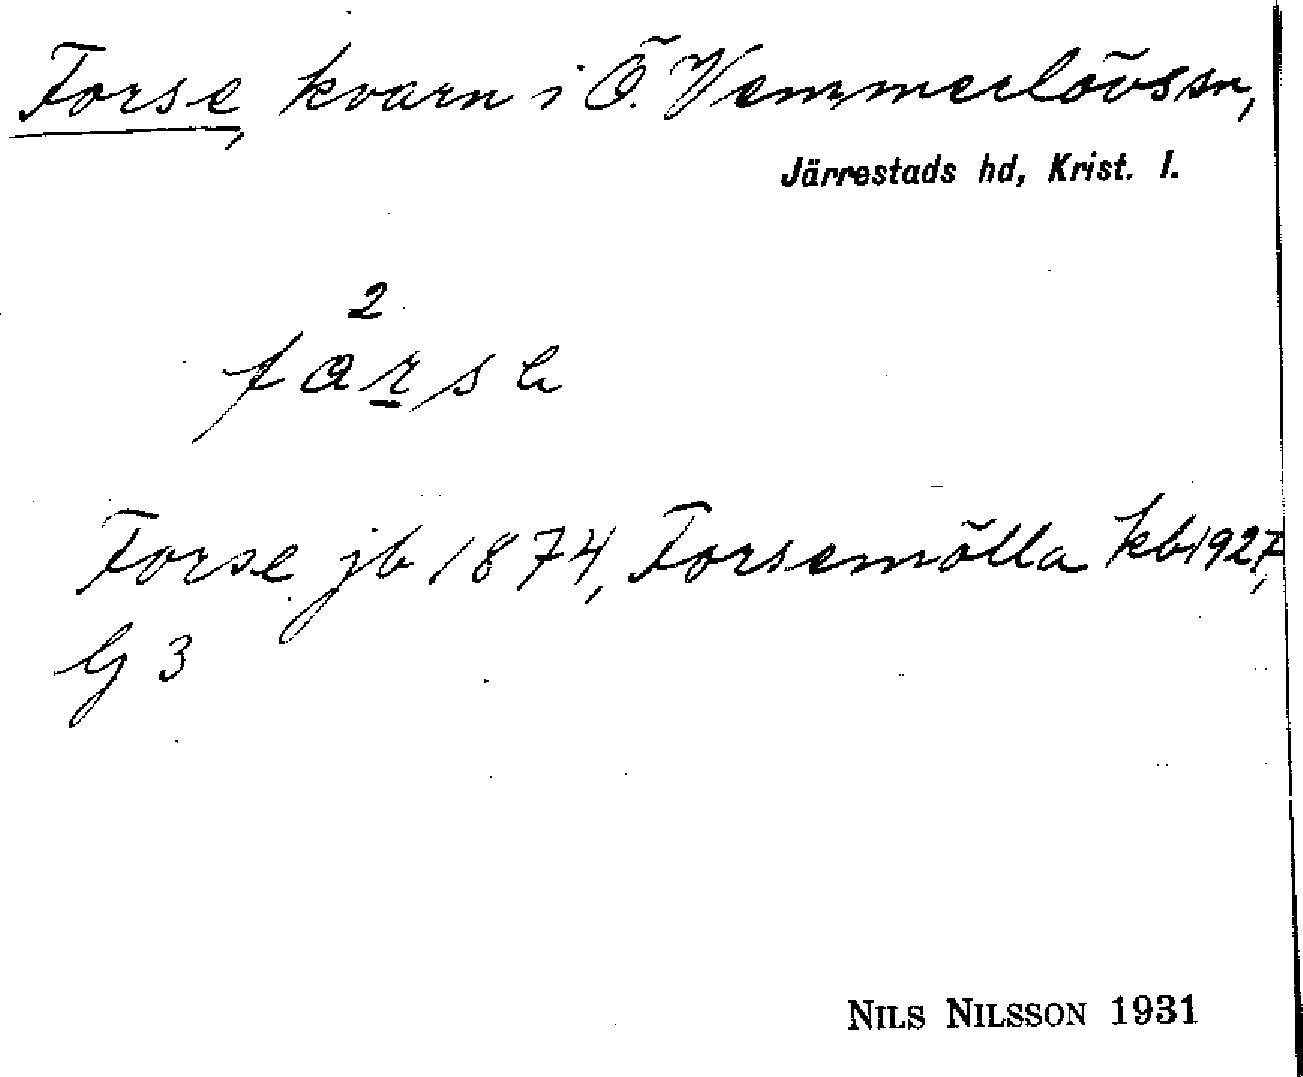 Forse, kvarn i Ö. Vemmerlövs sn,
Järrestads hd, Krist. l.
2
Forse jb 1874, Forsemölla kb 1927,
G 3
NILS NILSSON 1931